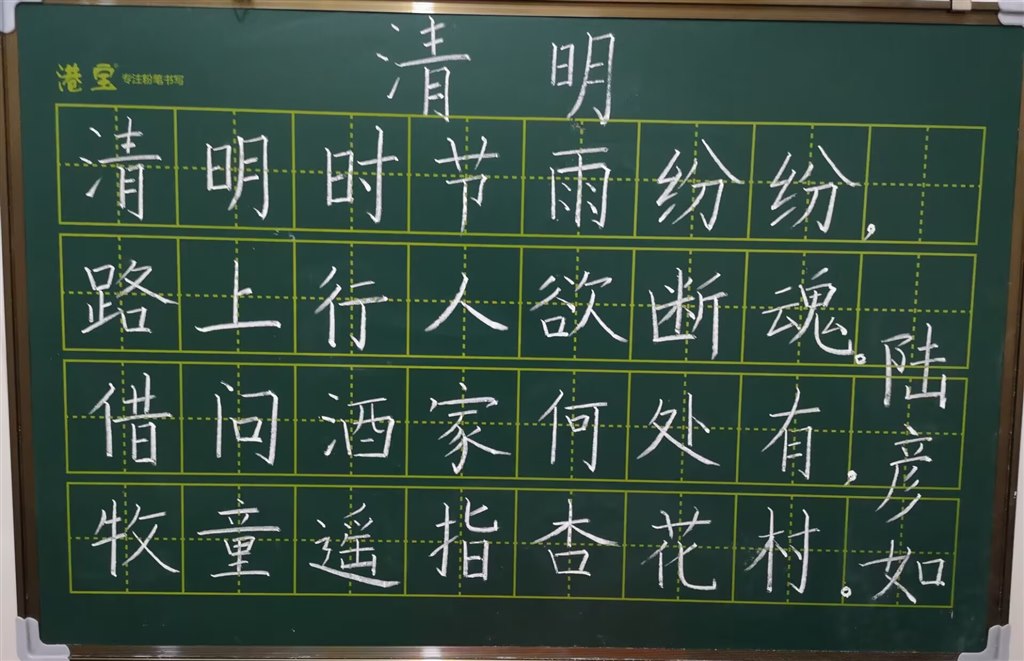 清明
港宝 专注粉笔书写
清明时节雨纷纷,
路上行人欲断魂。
借问酒家何处有,
牧童遥指杏花村。
陆彦如